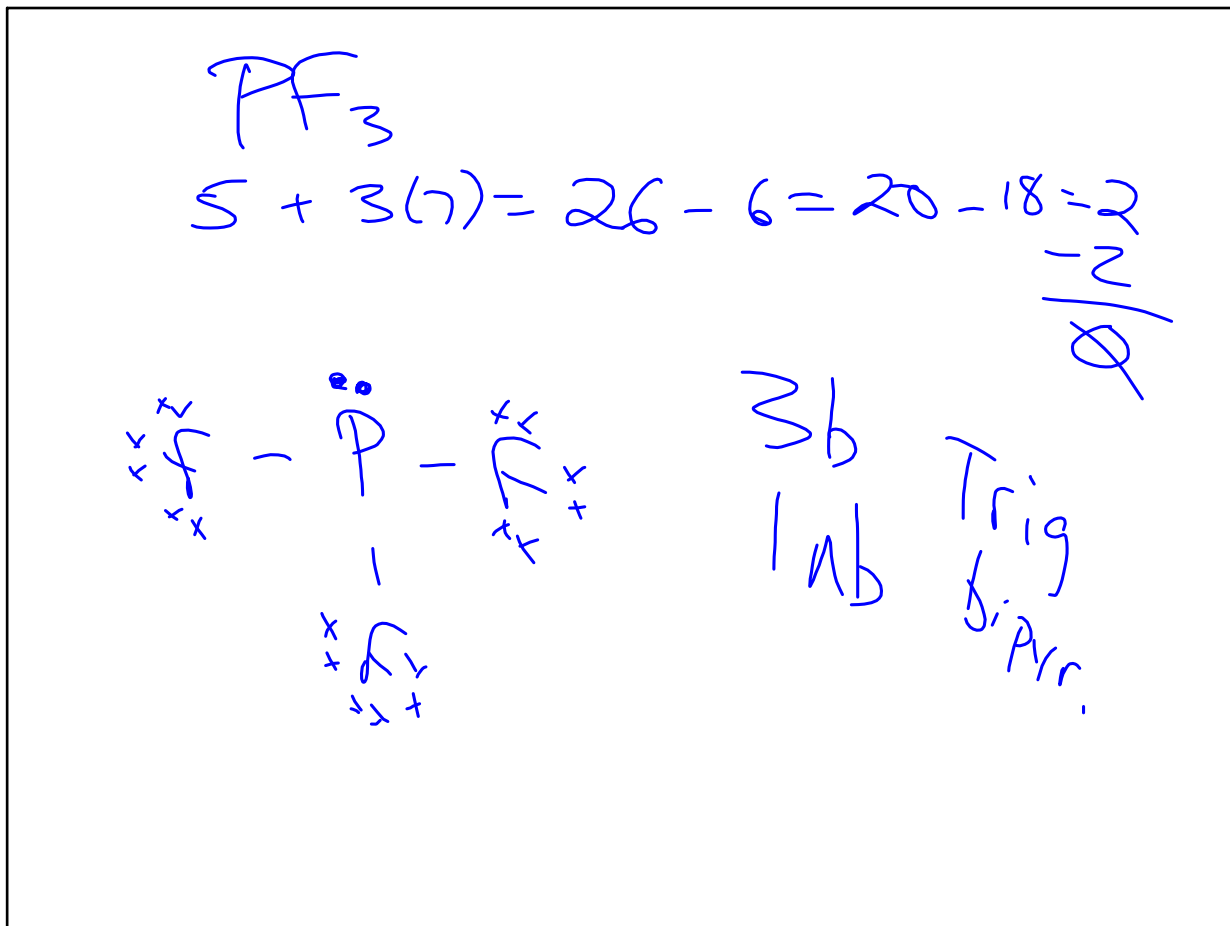 PF3
5 + 3(7) = 26 - 6 = 20 - 18 = 2
- 2
0
F - P - F
|
F
3b
1nb
Trig
bipyr.